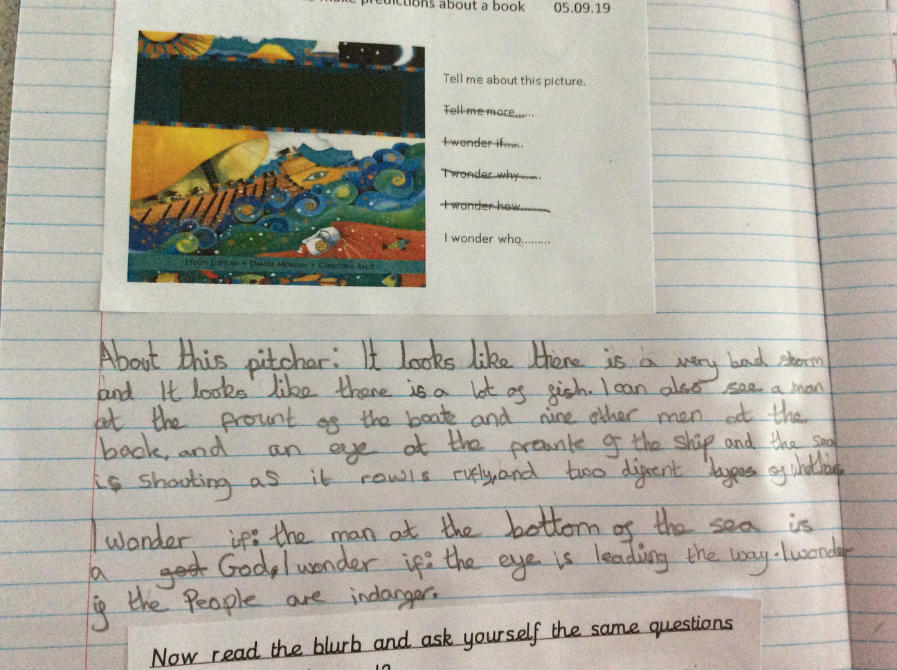 make predictions about a book 05.09.19
Tell me about this picture.
Tell me more......
I wonder if.....
I wonder why......
I wonder how........
I wonder who.........
HUGH LUPTON • DANIEL MORDEN • CHRISTINA BALIT
About this pitcher: It looks like there is a very bad storm
and It looks like there is a lot of fish. I can also see a man
at the frount of the boate and nine other men at the
back, and an eye at the prounte of the ship and the sea
is shouting as it rowls rufly, and two difrent types of
I wonder if: the man at the bottom of the sea is
a god God, I wonder if: the eye is leading the way. I wonder
if the People are indanger.
Now read the blurb and ask yourself the same questions